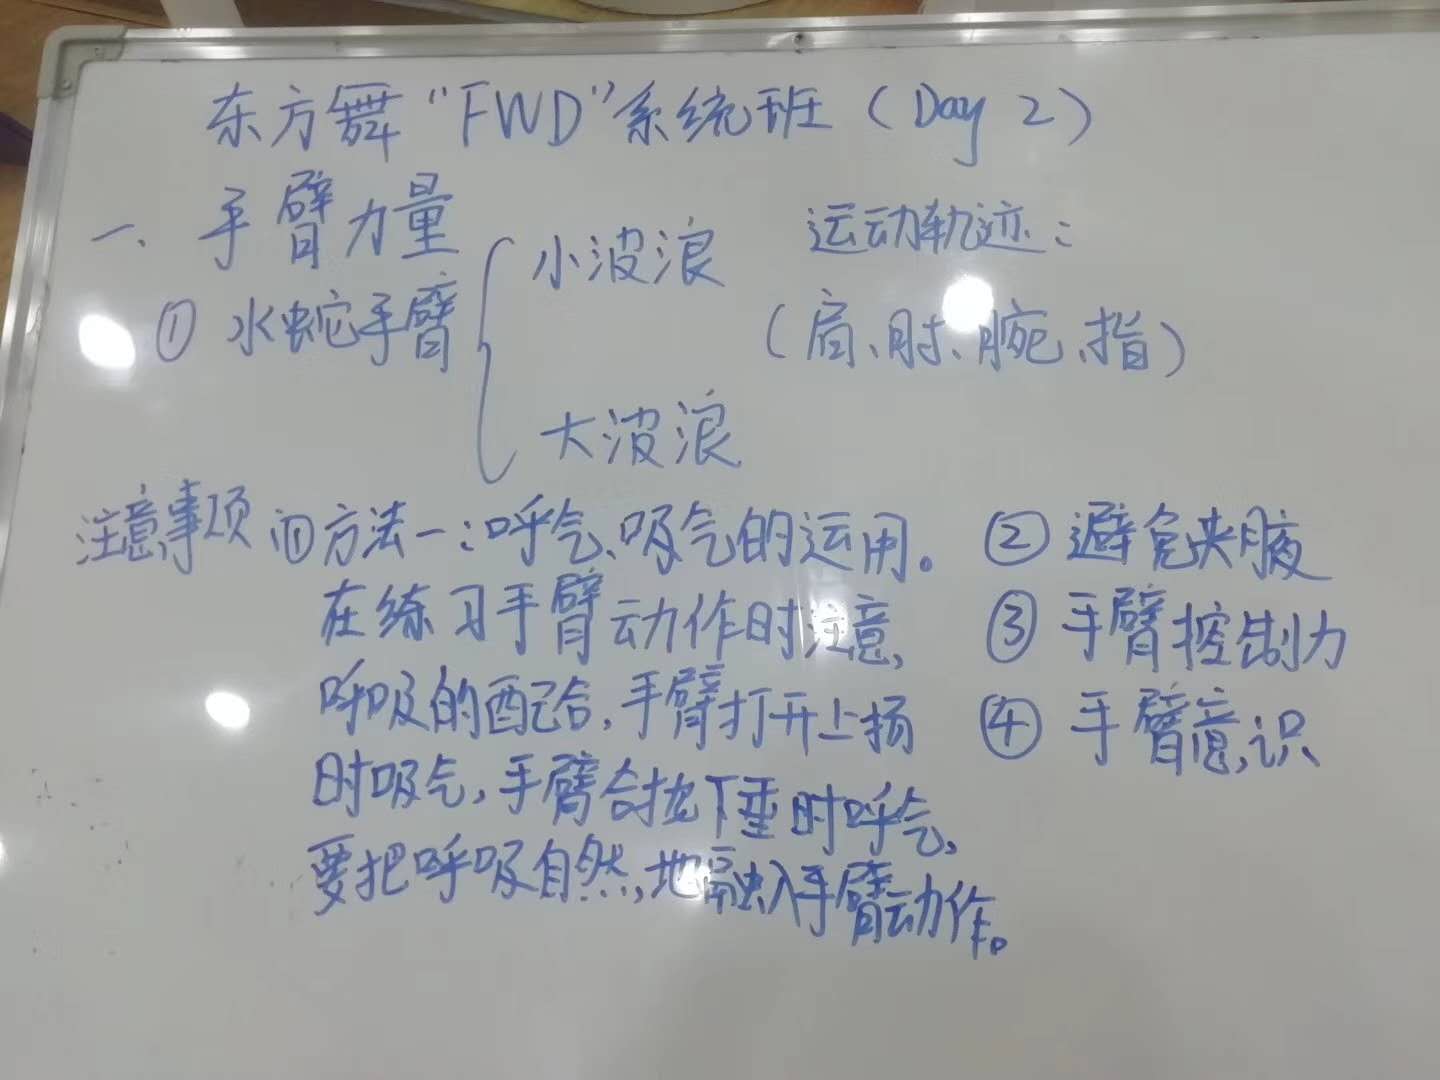 东方舞“FWD”系统班（Day 2）
一、手臂力量
①水蛇手臂
小波浪
大波浪
运动轨迹：
（肩、肘、腕、指）
注意事项 ①方法一：呼气、吸气的运用。
在练习手臂动作时注意，
呼吸的配合，手臂打开上扬
时吸气，手臂合拢下垂时呼气，
要把呼吸自然，地融入手臂动作。
②避免夹腋
③手臂控制力
④手臂意识